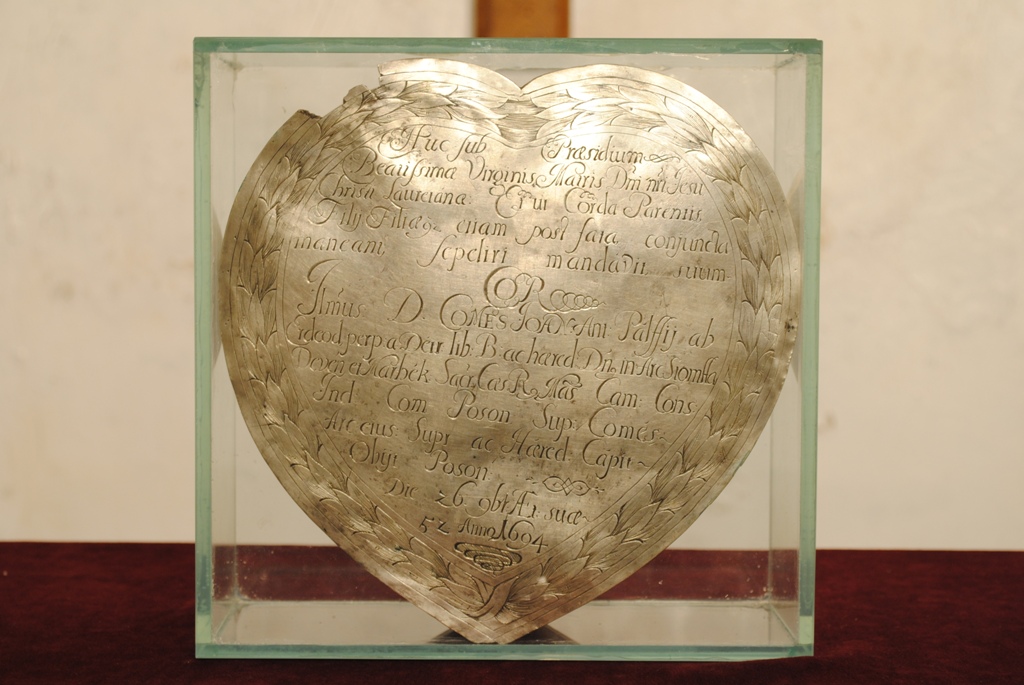 Huc sub Præsidium
Beatissimæ Virginis Matris Dni nri Jesu
Christi Lauretanæ Et ut Corda Parentis,
Filij Filiæq etiam post fata conjuncta
maneant, sepeliri mandavit suum
COR
Ilmus D. COMES JOAN: Ant: Palffij ab
Erdeod perp: a Detr: lib: B. ac hæred: Dn9 in Arc
Deven et Marhék Sac: Cæs: R. Mâs Cam: Cons:
Ind Com Poson Sup: Comés:
Arc eius: Supr ac Hæred: Capit
Obijt Poson:
Die 26 obt Æt: suæ
52 Anno 1694